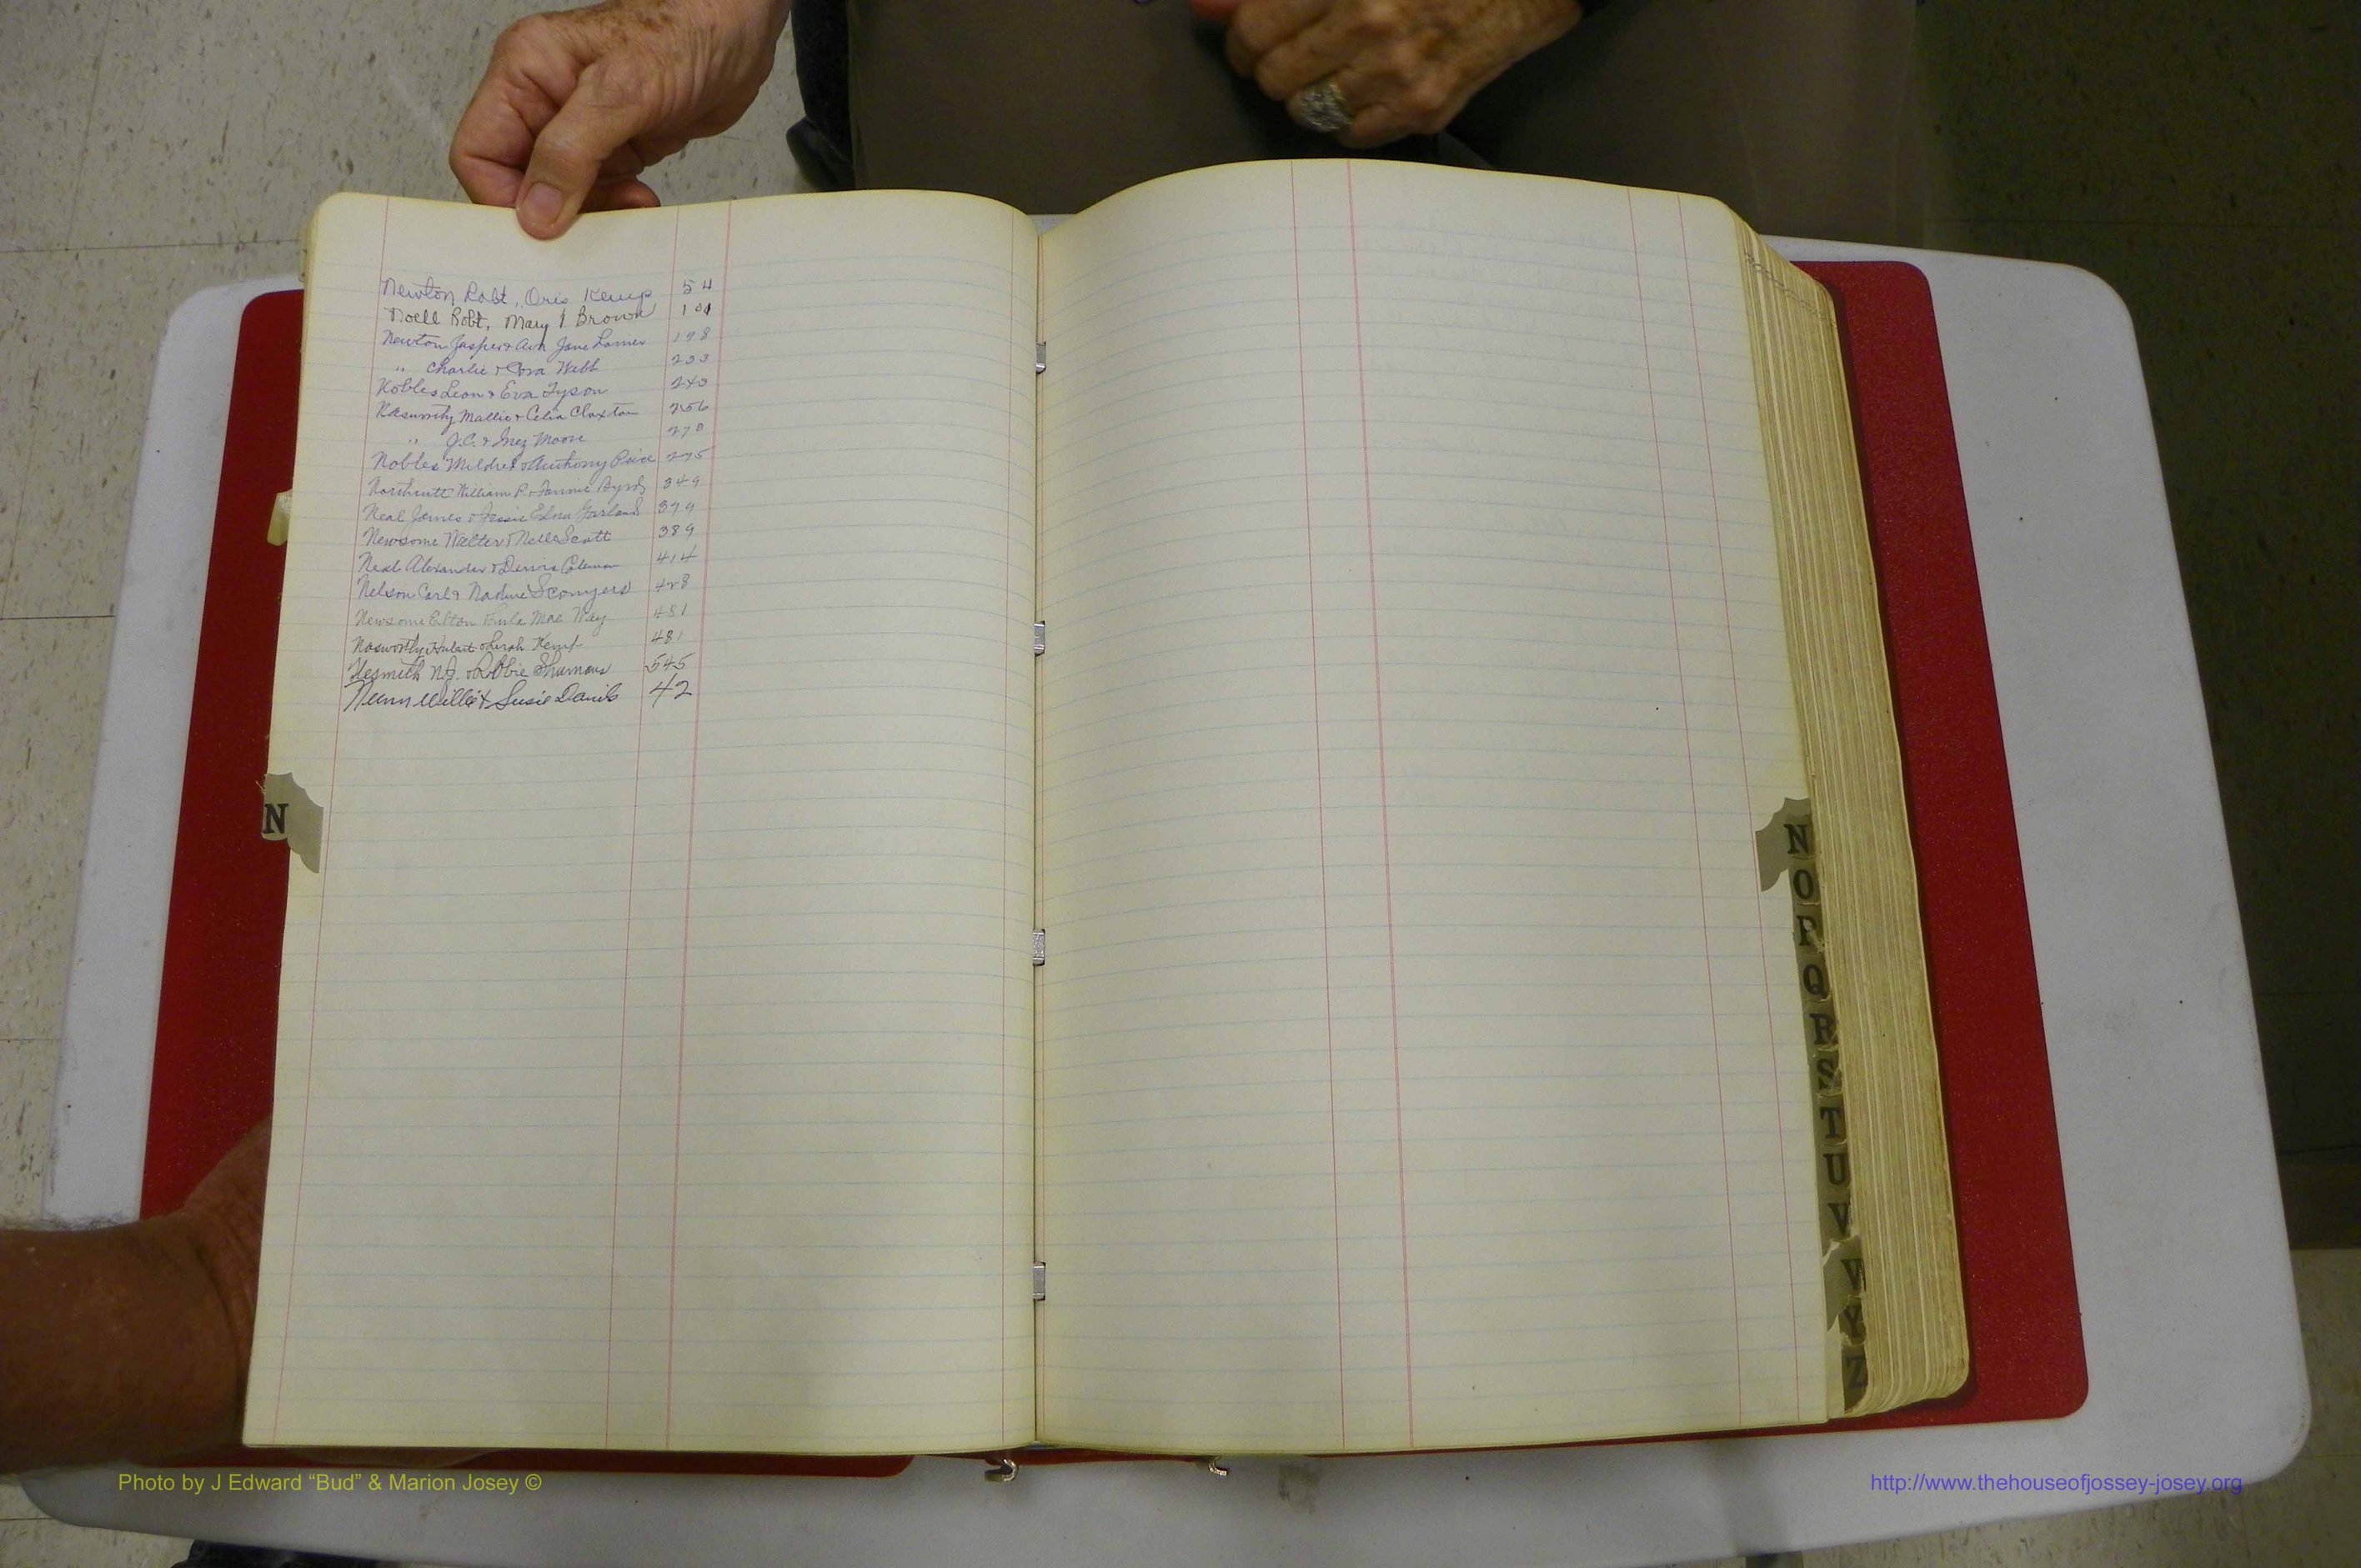 Newton Robt, Oris Kemp 54
Noell Robt, Mary I Brown 101
Newton Jasper & Ava Jane Lamer 198
" Charlie & Cora Webb 233
Nobles Leon & Eva Tyson 240
Mallie & Celia Claxton 256
" J.C. & Inez Moore 270
Nobles Mildred & Anthony Price 275
Northcutt William P. & Fannie Byrd 349
Neal James & Jessie Edna Garland 379
Newsome Walter & Nell Scott 389
Neal Alexander & Coleman 414
Nelson Carl & Nadine Scomyers 428
Newsome Elton Eula Mae Way 481
Nasworthy Hubert & Kemp 481
Nesmith & Robbie 545
Nunn Willie & Susie Davis 42
N
N
O
P
Q
R
S
T
U
V
W
Y
Z
Photo by J Edward “Bud” & Marion Josey ©
http://www.thehouseofjossey-josey.org